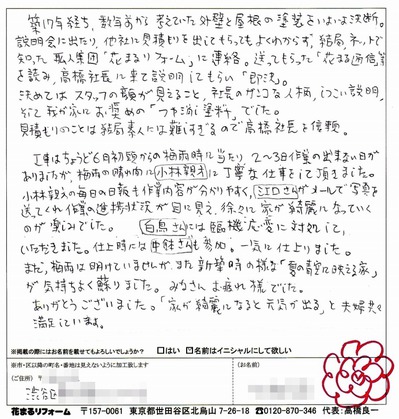 築17年経ち、数年前から考えていた外壁と屋根の塗装をいよいよ決断。
説明会に出たり、他社に見積もりを出してもらってもよくわからず、結局、ネットで
知った職人集団「花まるリフォーム」に連絡。送ってもらった「花まる通信」等
を読み、高橋社長に来て説明してもらい「即決」。
決めてはスタッフの顔が見えること、社長のきさくな人柄、しつこい説明、
そして我が家にお奨めの「フッ素塗料」でした。
見積もりのことは結局素人には難しすぎるので高橋社長を信頼。
工事はちょうど6月初頭からの梅雨時に当たり、2～3日作業の出来ない日が
ありましたが、梅雨の晴れ間に小林親方に丁寧な仕事をして頂きました。
小林親方の毎日の日報も作業内容が分かりやすく、シロさんがメールで写真を
送ってくれ作業の進捗状況が目に見え、徐々に家が綺麗になっていく
のが楽しみでした。白鳥さんには臨機応変に対処して
いただきました。仕上時には さんも参加、一気に仕上りました。
まだ、梅雨は明けていませんが、また新築時の様な「夏の青空に映える家」
が気持ちよく蘇りました。みなさんお疲れ様でした。
ありがとうございました。「家が綺麗になると元気が出る」と夫婦共々
満足しています。
※掲載の際にはお名前を載せてもよろしいでしょうか? □はい ☑名前はイニシャルにして欲しい
※市・区以降の町名・番地は見えないように加工致します
(ご住所) 〒
(お名前)
渋谷区
花まるリフォーム 〒157-0061 東京都世田谷区北烏山7-26-18 ☎0120-870-346 代表:高橋良一